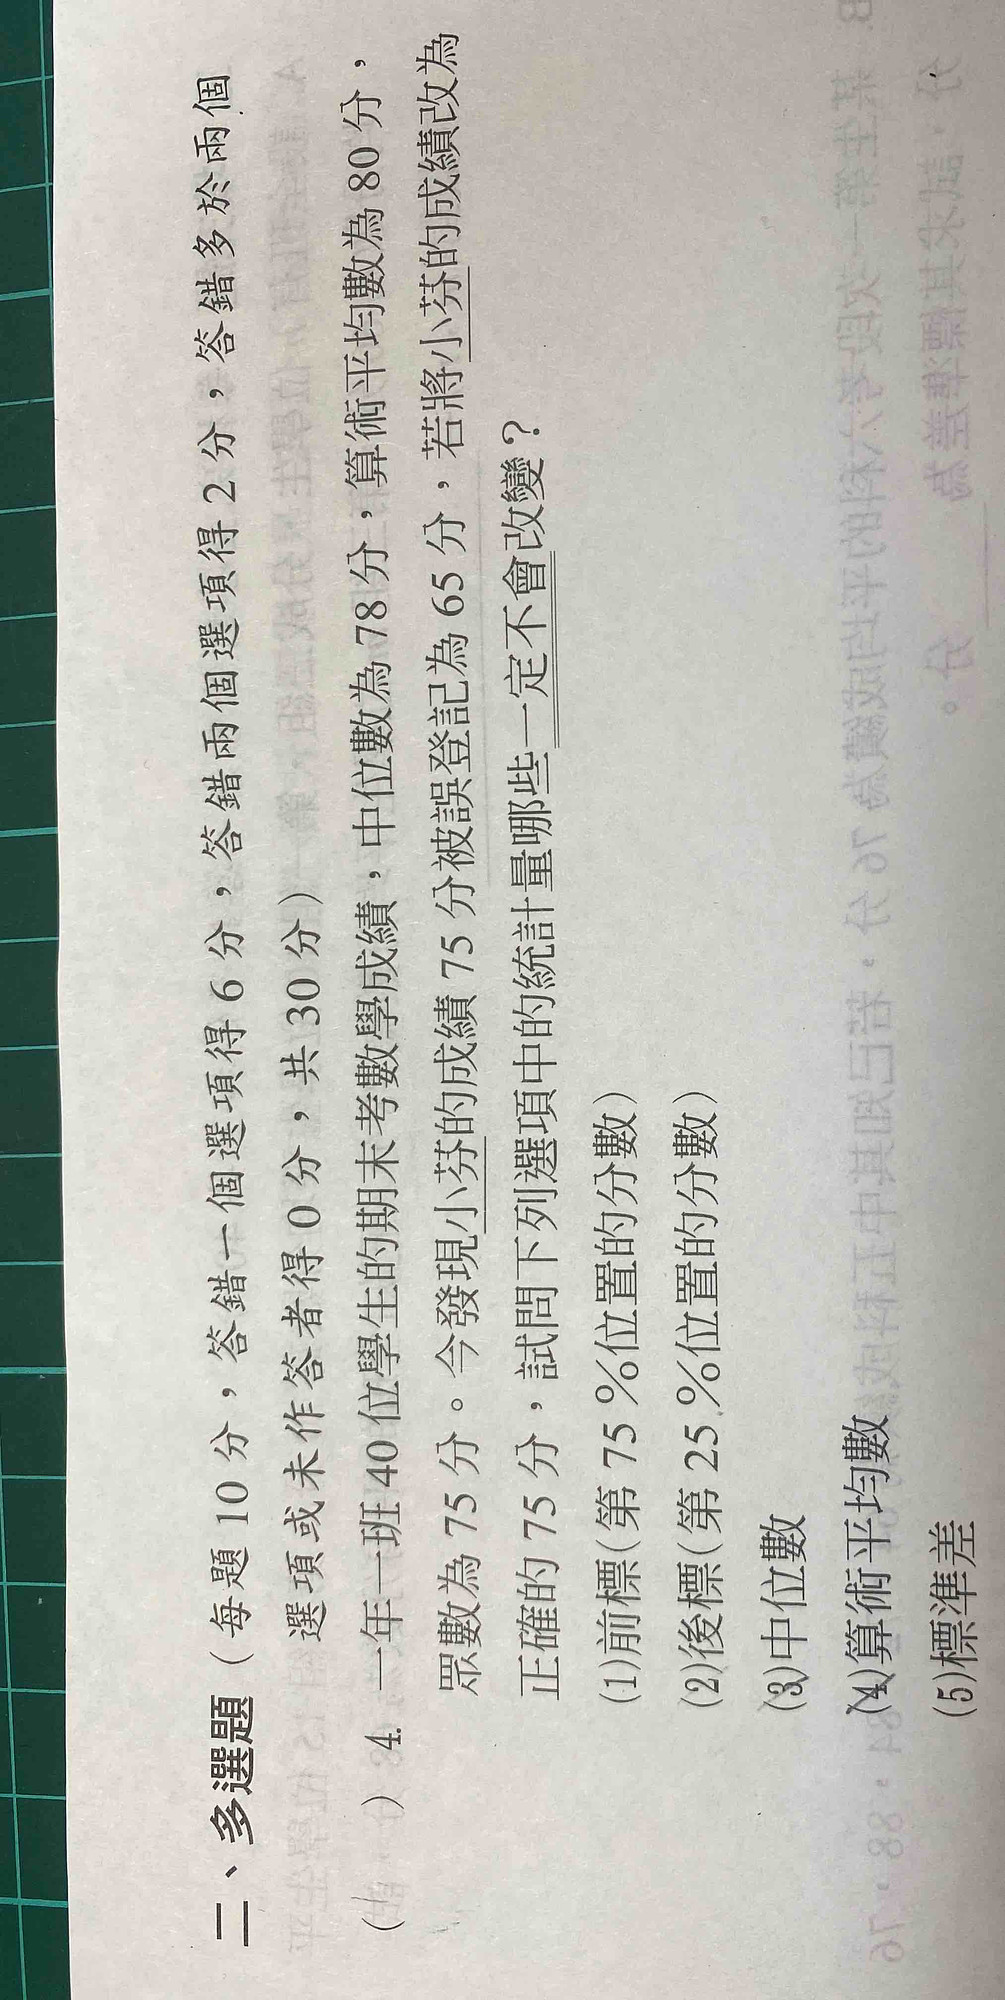 二、多選題（每題 10 分，答錯一個選項得 6 分，答錯兩個選項得 2 分，答錯多於兩個
選項或未作答者得 0 分，共 30 分）
（　）4. 一年一班 40 位學生的期末考數學成績，中位數為 78 分，算術平均數為 80 分，
眾數為 75 分。今發現小芬的成績 75 分被誤登記為 65 分，若將小芬的成績改為
正確的 75 分，試問下列選項中的統計量哪些一定不會改變？
(1)前標(第 75 %位置的分數)
(2)後標(第 25 %位置的分數)
(3)中位數
(4)算術平均數
(5)標準差